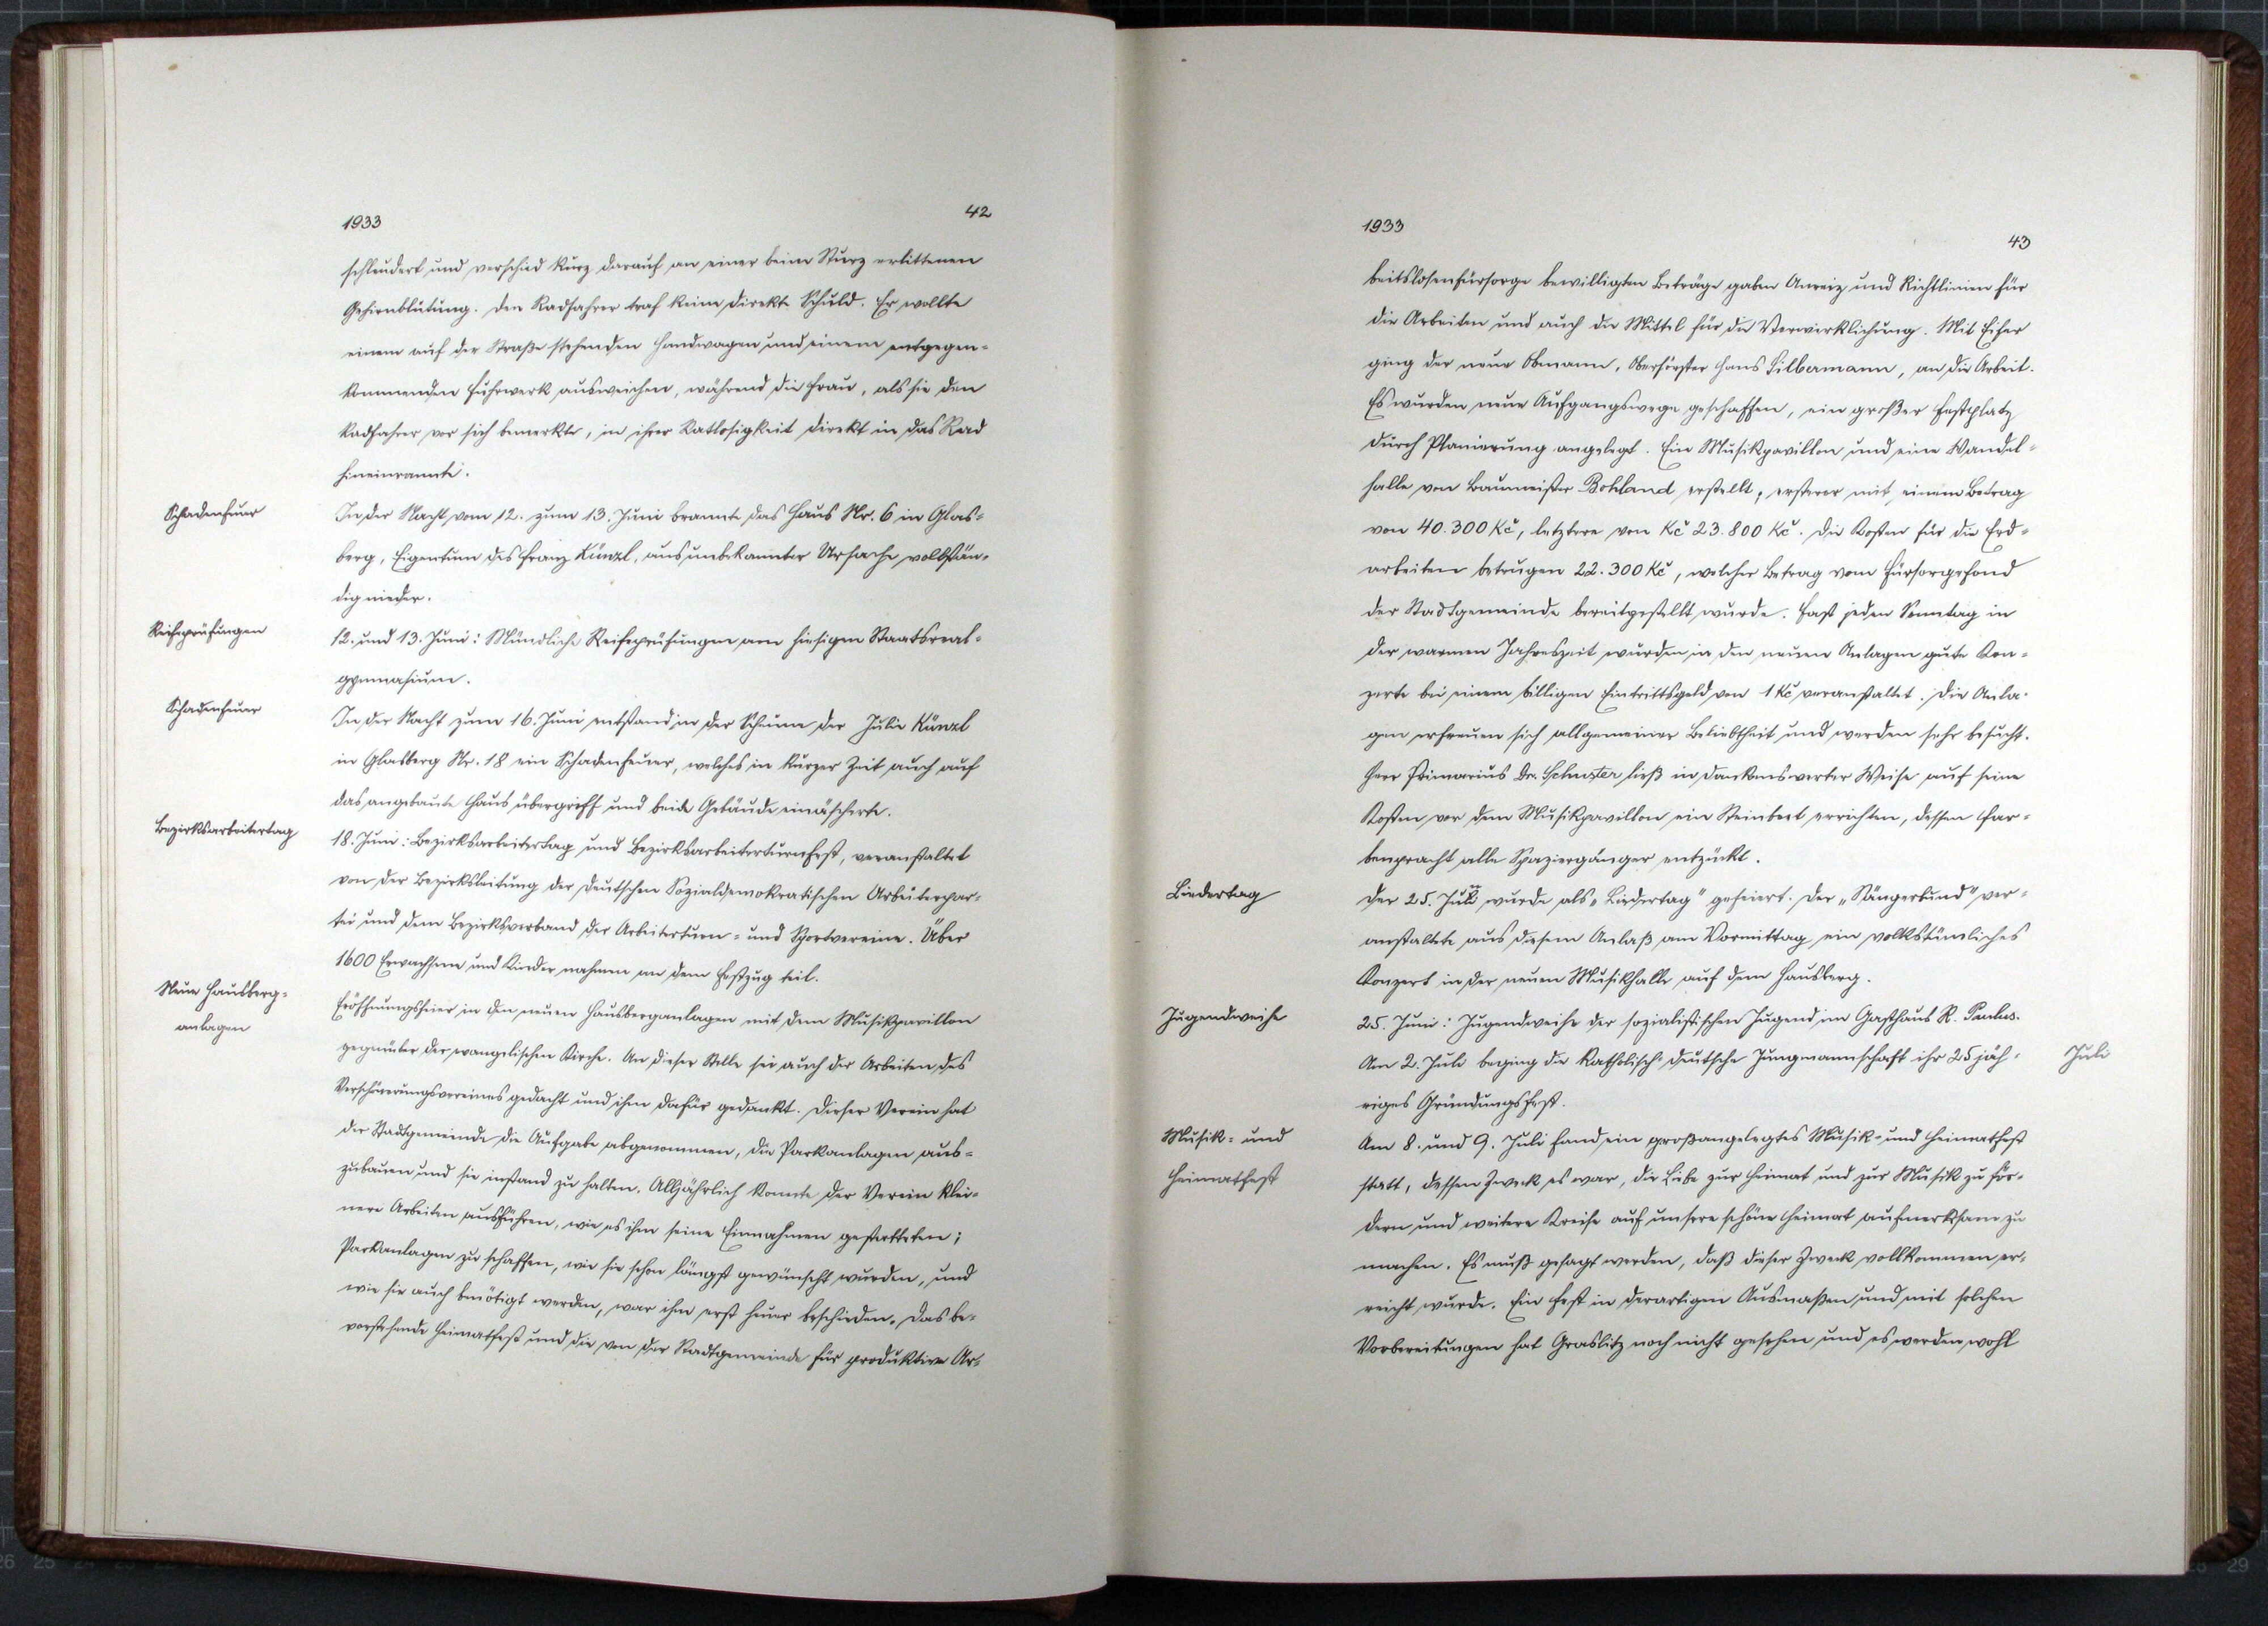 1933
42
schleudert und verschied kurz darauf an einer beim Sturz erlittenen
Gehirnblutung. Den Radfahrer traf keine direkte Schuld. Er wollte
einem auf der Straße stehenden Handwagen und einem entgegen-
kommenden Fuhrwerk ausweichen, während die Frau, als sie den
Radfahrer vor sich bemerkte, in ihrer Ratlosigkeit direkt in das Rad
hineinrannte.
Schadenfeuer
In der Nacht vom 12. zum 13. Juni brannte das Haus Nr. 6 in Glas-
berg, Eigentum des Franz Künzl, aus unbekannter Ursache vollstän-
dig nieder.
Reifeprüfungen
12. und 13. Juni: Mündliche Reifeprüfungen am hiesigen Staatsreal-
gymnasium.
Schadenfeuer
In der Nacht zum 16. Juni entstand in der Scheune der Julie Künzl
in Glasberg Nr. 18 ein Schadenfeuer, welches in kurzer Zeit auch auf
das angebaute Haus übergriff und beide Gebäude einäscherte.
Bezirksarbeitertag
18. Juni: Bezirksarbeitertag und Bezirksarbeiterturnfest, veranstaltet
von der Bezirksleitung der Deutschen Sozialdemokratischen Arbeiterpar-
tei und dem Bezirksverband der Arbeiterturn- und Sportvereine. Über
1600 Erwachsene und Kinder nahmen an dem Festzug teil.
Neue Hausberg-
anlagen
Eröffnungsfeier in den neuen Hausberganlagen mit dem Musikpavillon
gegenüber der evangelischen Kirche. An dieser Stelle sei auch der Arbeiten des
Verschönerungsvereines gedacht und ihm dafür gedankt. Dieser Verein hat
der Stadtgemeinde die Aufgabe abgenommen, die Parkanlagen aus-
zubauen und sie instand zu halten. Alljährlich konnte der Verein klei-
nere Arbeiten ausführen, wie es ihm seine Einnahmen gestatteten;
Parkanlagen zu schaffen, wie sie schon längst gewünscht wurden, und
wie sie auch benötigt werden, war ihm erst heuer beschieden. Das be-
vorstehende Heimatfest und die von der Stadtgemeinde für produktive Ar-
1933
43
beitslosenfürsorge bewilligten Beträge gaben Anreiz und Richtlinien für
die Arbeiten und auch die Mittel für die Verwirklichung. Mit Eifer
ging der neue Obmann, Oberförster Hans Silbermann, an die Arbeit.
Es wurden neue Aufgangswege geschaffen, ein großer Festplatz
durch Planierung angelegt. Ein Musikpavillon und eine Wandel-
halle von Baumeister Bohland erstellt, ersterer mit einem Betrag
von 40.300 Kč, letztere von Kč 23.800 Kč. Die Kosten für die Erd-
arbeiten betrugen 22.300 Kč, welcher Betrag vom Fürsorgefond
der Stadtgemeinde bereitgestellt wurde. Fast jeden Sonntag in
der warmen Jahreszeit wurden in den neuen Anlagen gute Kon-
zerte bei einem billigen Eintrittsgeld von 1 Kč veranstaltet. Die Anla-
gen erfreuen sich allgemeiner Beliebtheit und werden sehr besucht.
Herr Primarius Dr. Schuster ließ in dankenswerter Weise auf seine
Kosten vor dem Musikpavillon ein Steinbeet errichten, dessen Far-
benpracht alle Spaziergänger entzückt.
Liedertag
Der 25. Juni wurde als „Liedertag" gefeiert. Der „Sängerbund" ver-
anstaltete aus diesem Anlaß am Vormittag ein volkstümliches
Konzert in der neuen Musikhalle auf dem Hausberg.
Jugendweihe
25. Juni: Jugendweihe der sozialistischen Jugend im Gasthaus R. Paulus.
Am 2. Juli beging die katholisch-deutsche Jungmannschaft ihr 25 jäh-
Juli
riges Gründungsfest.
Musik- und
Heimatfest
Am 8. und 9. Juli fand ein großangelegtes Musik- und Heimatfest
statt, dessen Zweck es war, die Liebe zur Heimat und zur Musik zu för-
dern und weitere Kreise auf unsere schöne Heimat aufmerksam zu
machen. Es muß gesagt werden, daß dieser Zweck vollkommen er-
reicht wurde. Ein Fest in derartigen Ausmaßen und mit solchen
Vorbereitungen hat Graslitz noch nicht gesehen und es werden wohl